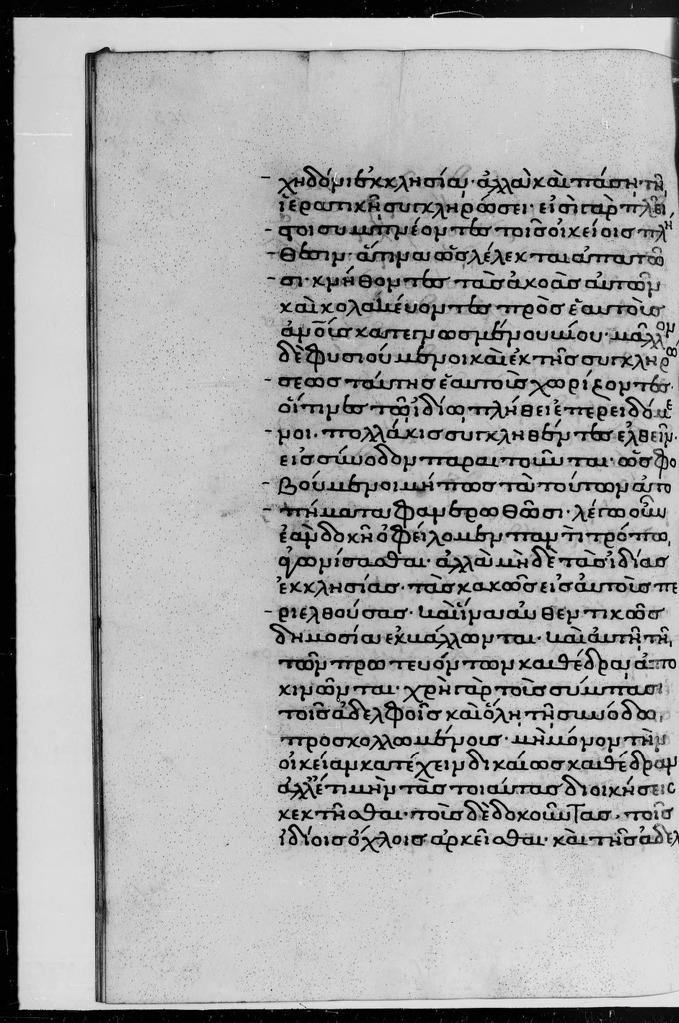 χηδόνι ἐκκλησίαι· ἀλλὰ καὶ πάσῃ τῆι
ἱερατικῆι συγκληρώσει· εἰσὶ γὰρ πλεῖ
στοι συμπνέοντες τοῖς οἰκείοις πλή
θεσιν· ἅτινα ὡς λέλεκται ἀπατῶ
σι· κνήθοντες τὰς ἀκοὰς αὐτῶν
καὶ κολακεύοντες πρὸς ἑαυτοὺς
ἀνοῖς κατεγνωσμένου βίου· μᾶλλον
δὲ φυσιούμενοι καὶ ἐκ τῆς συγκληρώ
σεως ταύτης ἑαυτοὺς χωρίζοντες·
οἵτινες τῶι ἰδίω πλήθει ἐπερειδόμε
νοι· πολλάκις συγκληθέντες ἐλθεῖν
εἰς σύνοδον παραιτοῦνται· ὡς φο
βούμενοι μήπως τὰ τούτων ἀτο
πήματα φανερωθῶσι· λέγω οὖν
ἐὰν δοκῆ ὀφείλομεν παντὶ τρόπω
φρωνίσασθαι· ἀλλὰ μὴ δὲ τὰς ἰδίας
ἐκκλησίας· τὰς κακῶς εἰς αὐτοὺς πε
ριελθούσας· καὶ ἵνα αὐθεντικῶς
δημοσία ἐκβάλλωνται· καὶ αὐτῆ τῆι
τῶν πρωτευόντων καθέδραι ἀπο
κινῶνται· χρὴ γὰρ τοῖς σύμπασι
τοῖς ἀδελφοῖς καὶ ὅλῃ τῆ συνόδω
προσκολλωμένοις· μὴ μόνον τὴν
οἰκείαν κατέχειν δικαίως καθέδραν
ἀλλ' ἔτι μὴν τὰς τοιαύτας διοικήσεις
κεκτῆσθαι· τοὺς δὲ δοκοῦντας· τοῖς
ἰδίοις ὄχλοις ἀρκεῖσθαι· καὶ τῆς ἀδελ